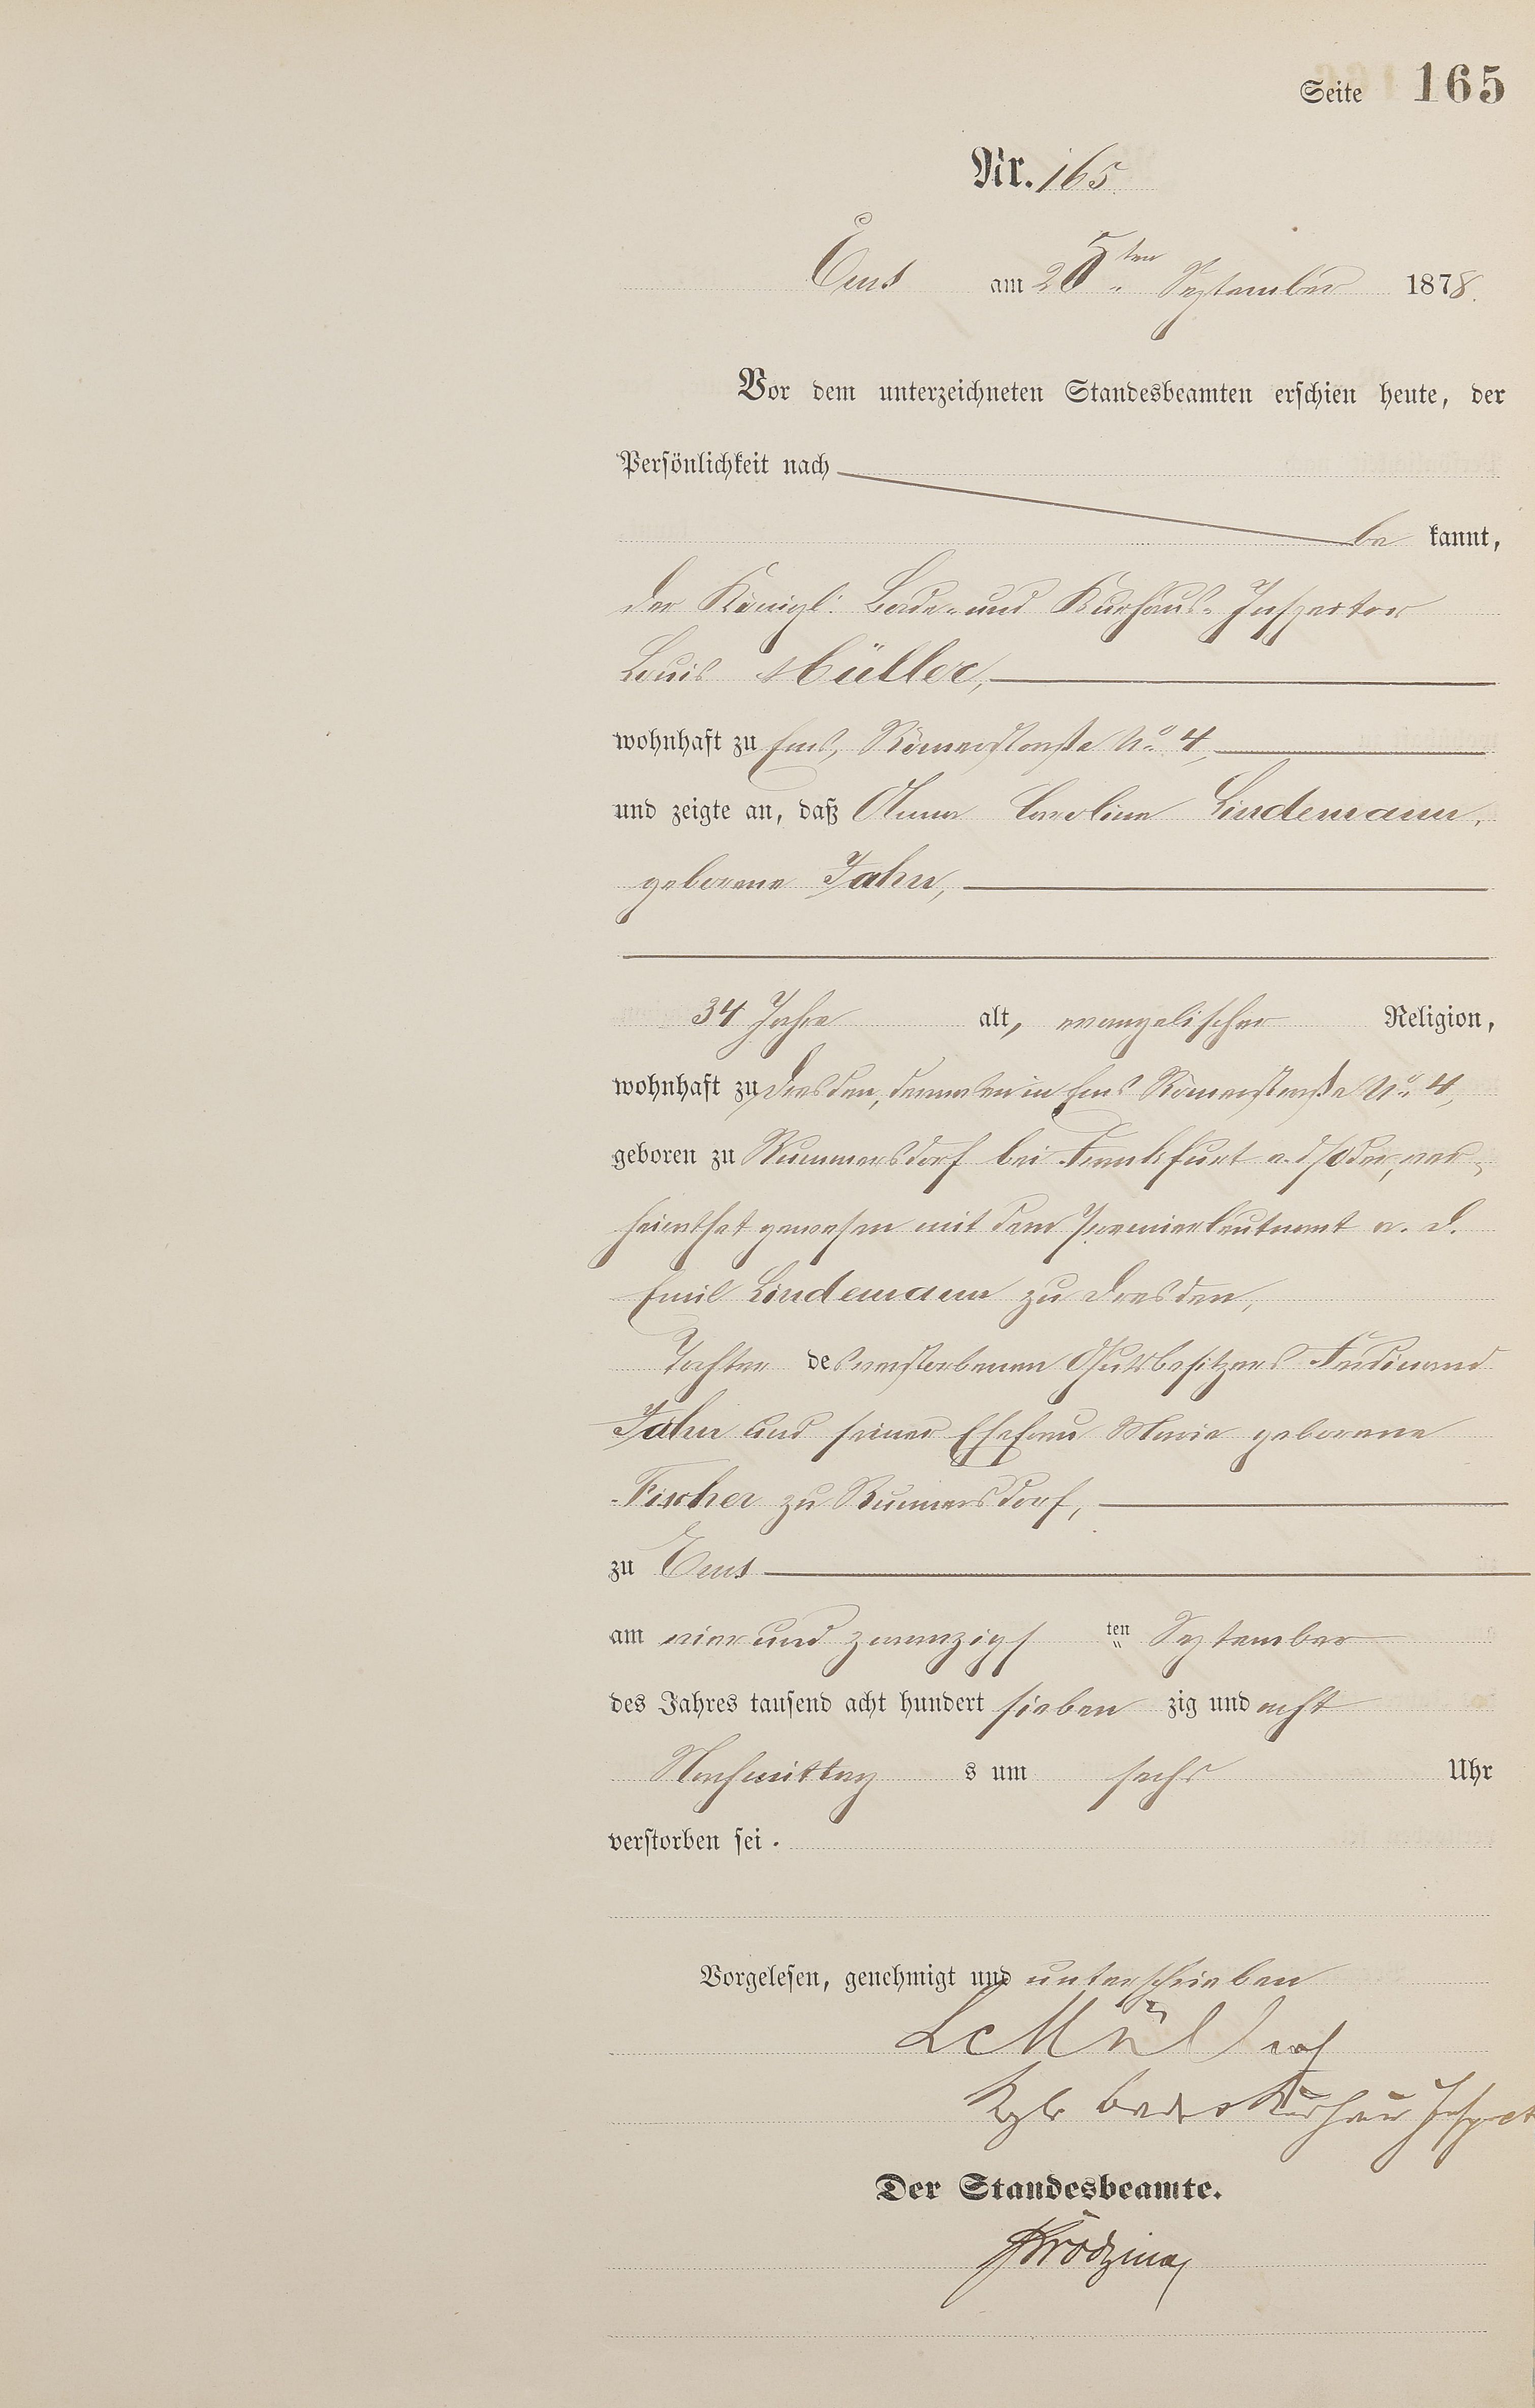 Seite 165
Nr. 165
Ems am 25ten September 1878.
Vor dem unterzeichneten Standesbeamten erschien heute, der
Persönlichkeit nach
be kannt,
der Königl: Bade- und Kurhaus-Inspector
Louis Müller,
wohnhaft zu Ems, Römerstraße No 4,
und zeigte an, daß Anna Caroline Lindemann,
geborene Jahn,
34 Jahre alt, evangelischer Religion,
wohnhaft zu Dresden, dermalen in Ems Römerstraße No 4,
geboren zu bei Frankfurt a. d/Oder, ver-
heirathet gewesen mit dem Premierleutnant a. D.
Emil Lindemann zu Dresden,
Tochter des verstorbenen Gutsbesitzers Ferdinand
Jahn und seiner Ehefrau Marie geborene
Fischer zu
zu Ems
am vier und zwanzigsten September
des Jahres tausend acht hundert sieben zig und acht
Nachmittag s um sechs Uhr
verstorben sei.
Vorgelesen, genehmigt und unterschrieben
Müller
Kgl Bade &amp; Kurhaus Inspect
Der Standesbeamte.